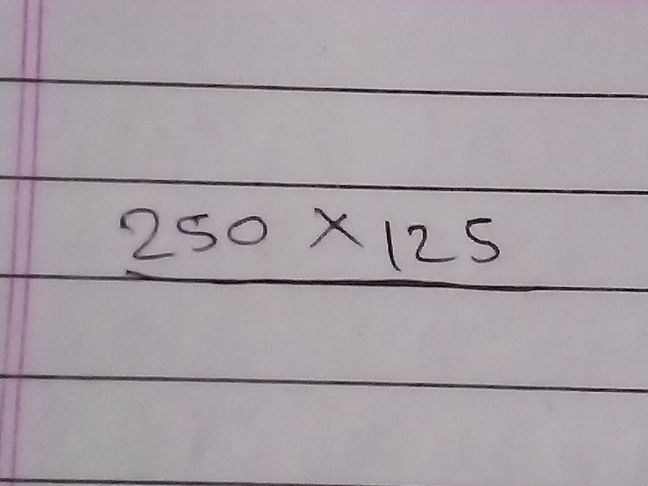 250 × 125